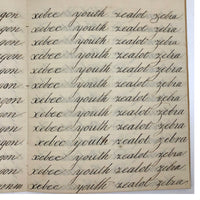 gon xebec youth zealot zebra
gon xebec youth zealot zebra
gon xebec youth zealot zebra
gon xebec youth zealot zebra
gon xebec youth zealot zebra
gon xebec youth zealot zebra
gon xebec youth zealot zebra
gon xebec youth zealot zebra
gon xebec youth zealot zebra
gon xebec youth zealot zebra
gon xebec youth zealot zebra
xebec youth zealot zebra